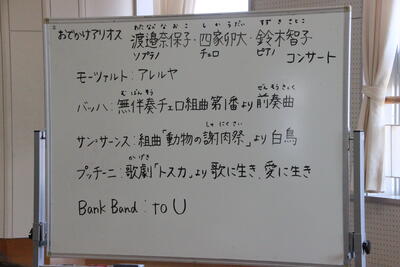 わたなべなおこ しかうだい すずきさとこ
おでかけアリオス 渡邉奈保子・四家卯大・鈴木智子
ソプラノ チェロ ピアノ コンサート
モーツァルト：アレルヤ
むばんそう ぜんそうきょく
バッハ：無伴奏チェロ組曲第1番より前奏曲
しゃにくさい
サン・サーンス：組曲「動物の謝肉祭」より白鳥
かげき
プッチーニ：歌劇「トスカ」より歌に生き、愛に生き
Bank Band：to U